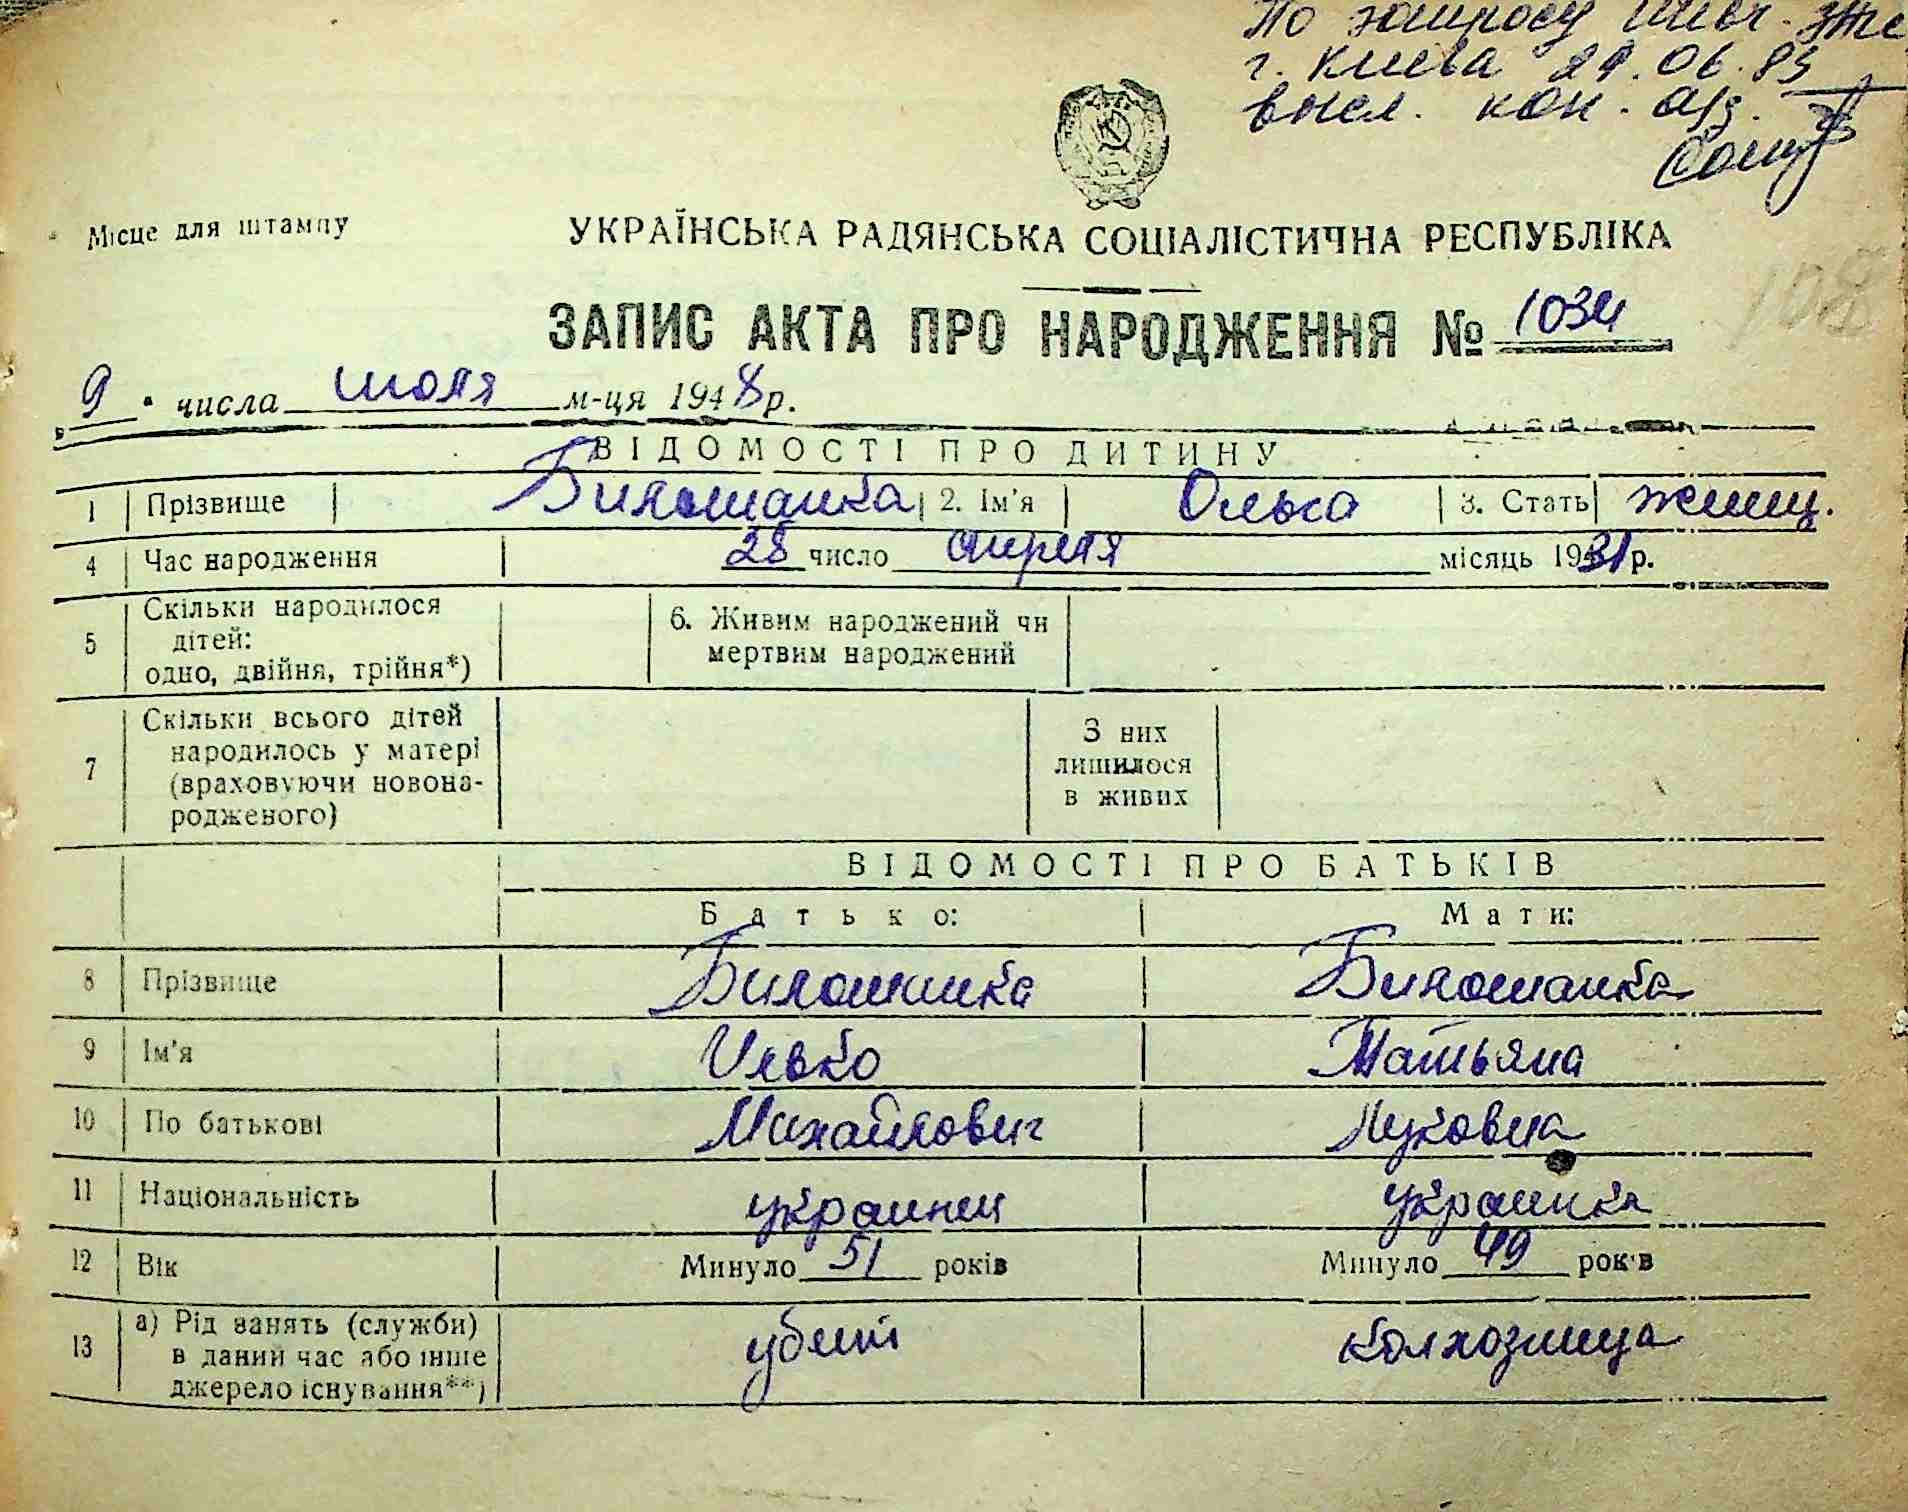 По запросу
г. Киева 29.06.83
высл. коп. а/з.
Місце для штампу
УКРАЇНСЬКА РАДЯНСЬКА СОЦІАЛІСТИЧНА РЕСПУБЛІКА
ЗАПИС АКТА ПРО НАРОДЖЕННЯ № 1034
108
9 числа июля м-ця 1948 р.
ВІДОМОСТІ ПРО ДИТИНУ
1 Прізвище Билошапка 2. Ім'я Ольга 3. Стать женщ.
4 Час народження 28 число апреля місяць 1931 р.
5 Скільки народилося дітей: одно, двійня, трійня*) 6. Живим народжений чи мертвим народжений
7 Скільки всього дітей народилось у матері (враховуючи новонародженого) З них лишилося в живих
ВІДОМОСТІ ПРО БАТЬКІВ
Батько: Мати:
8 Прізвище Билошапка Билошапка
9 Ім'я Илько Татьяна
10 По батькові Михайлович Луковна
11 Національність украинец украинка
12 Вік Минуло 51 років Минуло 49 років
13 а) Рід занять (служби) в даний час або інше джерело існування**) убит колхозница